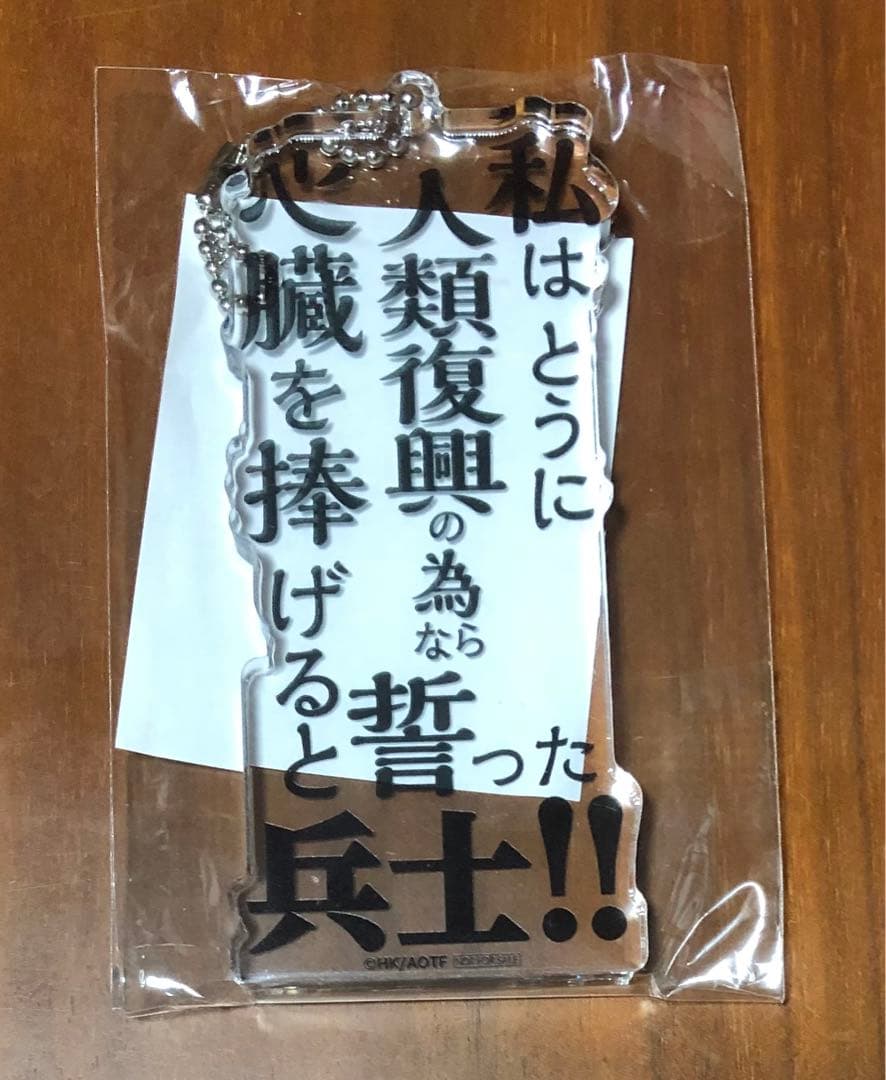 私はとうに
人類復興の為なら
心臓を捧げると
誓った
兵士!!
©HK/AOTF
NOT FOR SALE